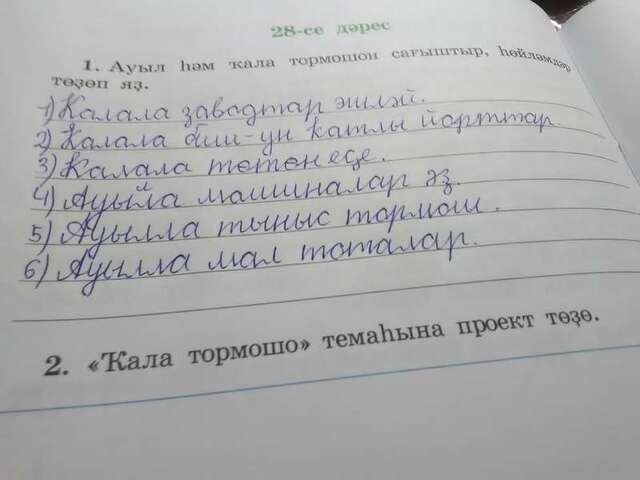 28-се дәрес
1. Ауыл һәм ҡала тормошон сағыштыр, һөйләмдәр
төҙөп яҙ.
1) Ҡалала заводтар эшләй.
2) Ҡалала биш-ун ҡатлы йорттар
3) Ҡалала төтөн еҫе.
4) Ауылла машиналар әҙ.
5) Ауылла тыныс тормош.
6) Ауылла мал тоталар.
2. «Ҡала тормошо» темаһына проект төҙө.